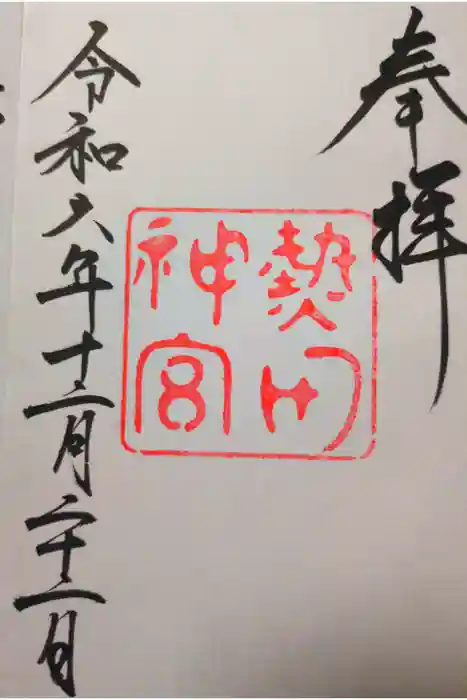 奉拝
熱田
神宮
令和六年十二月二十二日